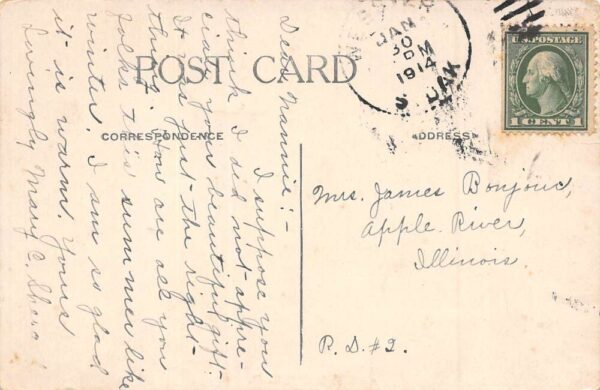 POST CARD
CORRESPONDENCE
ADDRESS
JAN
30
PM
1914
S. DAK
U.S. POSTAGE
1 CENT 1
Dear Nannie:-
I suppose you
think I did not appre-
ciate your beautiful gift.
It was just the right
thing. You are all you
folks. Tis summer like
winter. I am so glad
it is warm. Yours
lovingly Mary C.
Mrs. James Bonjour,
Apple River,
Illinois.
R.D. #2.